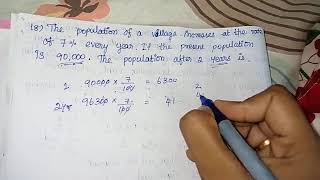 (8) The population of a village increases at the rate
of 7% every year. If the present population
is 90,000. The population after 2 years is.
2 90000 × 7/100 = 6300
96300 × 7/100 =
2